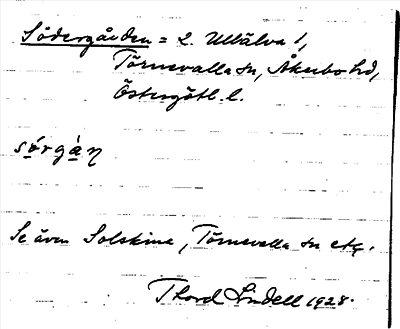 Södergården = 2. Ullälva 1,
Törnevalla sn, Åkerbo hd,
Östergötl. l.
sórgàn
Se även Solskina, Törnevalla sn etc.
Thord Lindell 1928.